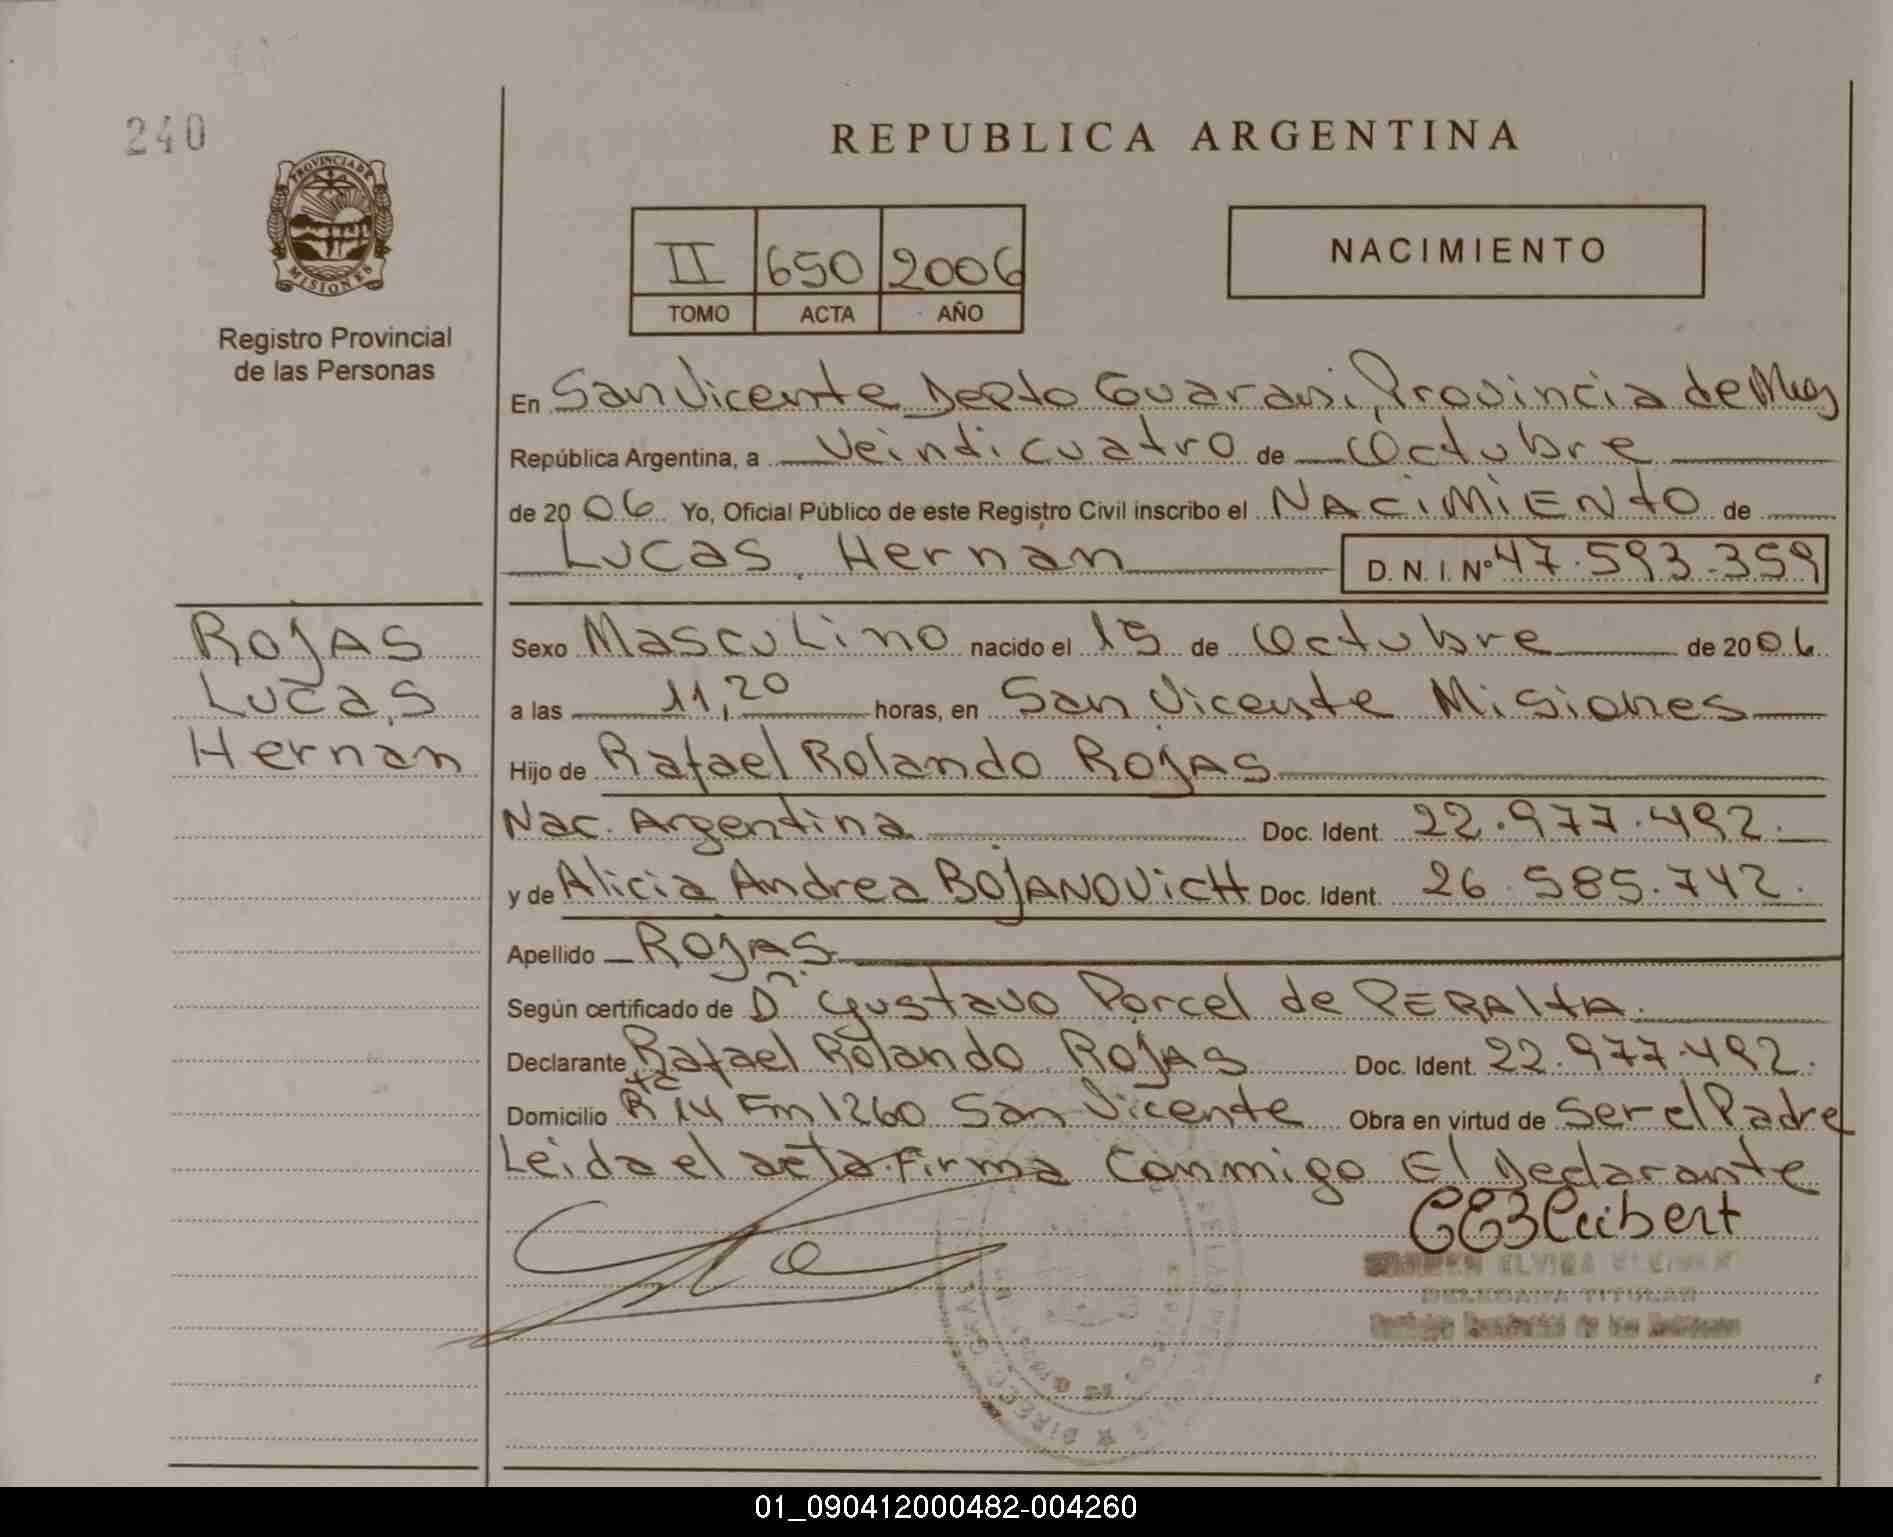 240
PROVINCIA DE
MISIONES
Registro Provincial
de las Personas
REPUBLICA ARGENTINA
II 650 2006
TOMO ACTA AÑO
NACIMIENTO
En San Vicente Depto Guarani, Provincia de Mnes
República Argentina, a Veinticuatro de Octubre
de 2006 Yo, Oficial Público de este Registro Civil inscribo el NACIMIENTO de
Lucas Hernan D. N. I. Nº 47.593.359
ROJAS
Lucas
Hernan
Sexo Masculino nacido el 19 de Octubre de 2006
a las 11,20 horas, en San Vicente Misiones
Hijo de Rafael Rolando ROJAS
Nac. Argentina Doc. Ident. 22.977.492.
y de Alicia Andrea BOJANOVICH Doc. Ident. 26.585.742.
Apellido ROJAS
Según certificado de Dr Gustavo Porcel de PERALTA.
Declarante Rafael Rolando ROJAS Doc. Ident. 22.977.492.
Domicilio Rta 14 Km 1260 San Vicente Obra en virtud de Ser el Padre
Leida el acta firma Conmigo El Declarante
ELVIRA
DELEGADA TITULAR
Registro Provincial de las Personas
01_090412000482-004260